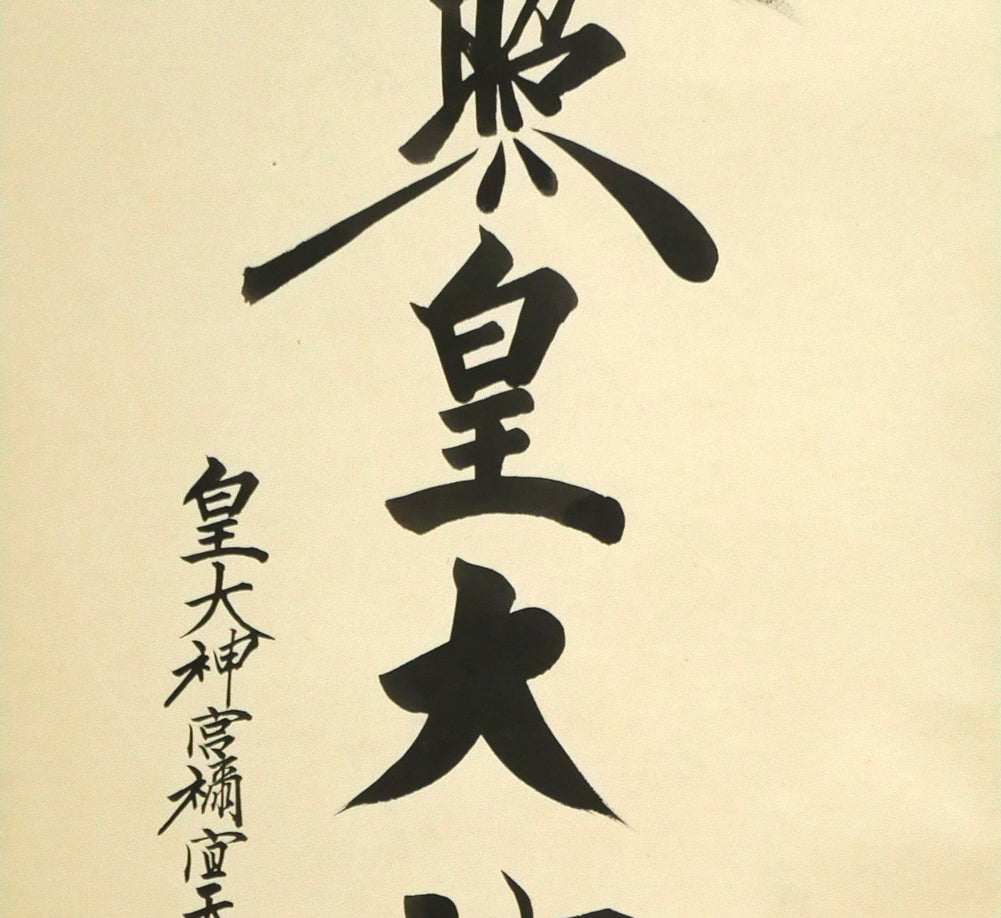 照皇大
皇大神宮禰宜